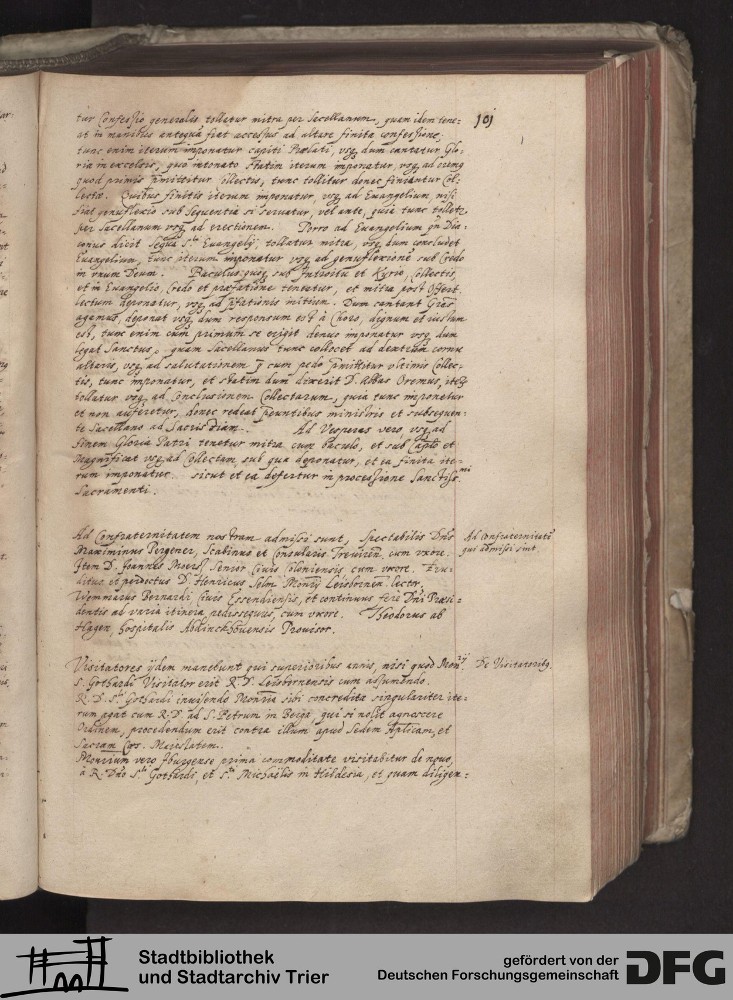 tur Confessio generalis tollatur mitra per Sacellanum, quam idem tene=
at in manibus antequā fiat accessus ad altare finita confessione,
tunc enim iterum imponatur capiti Prælati, vsq₃ dum cantatur Glo=
ria in excelsis, quo intonato statim iterum imponatur, vsq₃ ad
quod primis pmittitur Collectis, tunc tollitur donec finiantur Col=
lectæ. Quibus finitis iterum imponatur, vsq₃ ad Euangelium, nisi
fiat genuflexio sub Sequentia si seruatur, vel ante, quia tunc tolletr
per Sacellanum vsq₃ ad erectionem. Porro ad Euangelium qñ Dia=
conus dicit Sequa Sti Euangelij, tollatur mitra, vsq₃ dum concludet
Euangelium, tunc iterum imponatur vsq₃ ad genuflexionē sub Credo
in vnum Deum. Baculus quoq₃ sub Introitu et Kyrie, Collectis,
vt in Euangelio, Credo et præfatione teneatur, et mitra post Offert.
lectum deponatur, vsq₃ ad pfationis initium. Dum cantant Gras
agamus, deponat vsq₃ dum responsum est à Choro, dignum et iustum
est, tunc enim cum primum se erigit denuo imponatur vsq₃ dum
legat Sanctus, quam Sacellanus tunc collocet ad dextrum cornu
altaris, vsq₃ ad salutationem q̄ cum pede pmittitur vltimis Collec=
tis, tunc imponatur, et statim dum dixerit D. Abbas Oremus,
tollatur vsq₃ ad Conclusionem Collectarum, quia tunc imponetur
et non auferetur, donec redeat peuntibus ministris et subsequen=
te Sacellano ad Sacristiam. Ad Vesperas vero vsq₃ ad
finem Gloria Patri tenetur mitra cum baculo, et sub et
Magnificat vsq₃ ad Collectam sub qua deponatur, et ea finita ite=
rum imponatur. sicut et ea defertur in processione Sanctiss.mi
Sacramenti.
101
Ad Confraternitatem nostram admissi sunt, Spectabilis Dñs
Maximinus Pergener, Scabinus et Consularis Treuiren. cum vxore.
Item D. Joannes Moers, Senior Ciuis Coloniensis cum vxore. Eru=
ditus et perdoctus D. Henricus Monrij Leisbornen. lector,
Wemmarus Bernardi Ciuis Essendiensis, et continuus ferè Dñi Præsi=
dentis ad varia itinera pedissequus, cum vxore. Theodorus ab
Hagen, hospitalis Abdinckhouensis Prouisor.
Ad Confraternitatē
qui admissi sint
Visitatores ijdem manebunt qui superioribus annis, nisi quod Monrij
S. Gothardi Visitator erit R. D. Leisbornensis cum adsumendo.
R. D. Sti Gothardi inuisendo Monria sibi concredita singulariter ite=
rum agat cum R. D. ad S. Petrum in Berga, qui si nolit agnoscere
Ordinem, procedendum erit contra illum apud Sedem Aplicam, et
Sacram Cæs. Maiestatem.
Monrium vero Iburgense prima commoditate visitabitur de nouo,
à R. Dno Sti Gothardi, et Sti Michaëlis in Hildesia, et quam diligen=
De Visitatorib₉
Stadtbibliothek
und Stadtarchiv Trier
gefördert von der
Deutschen Forschungsgemeinschaft
DFG